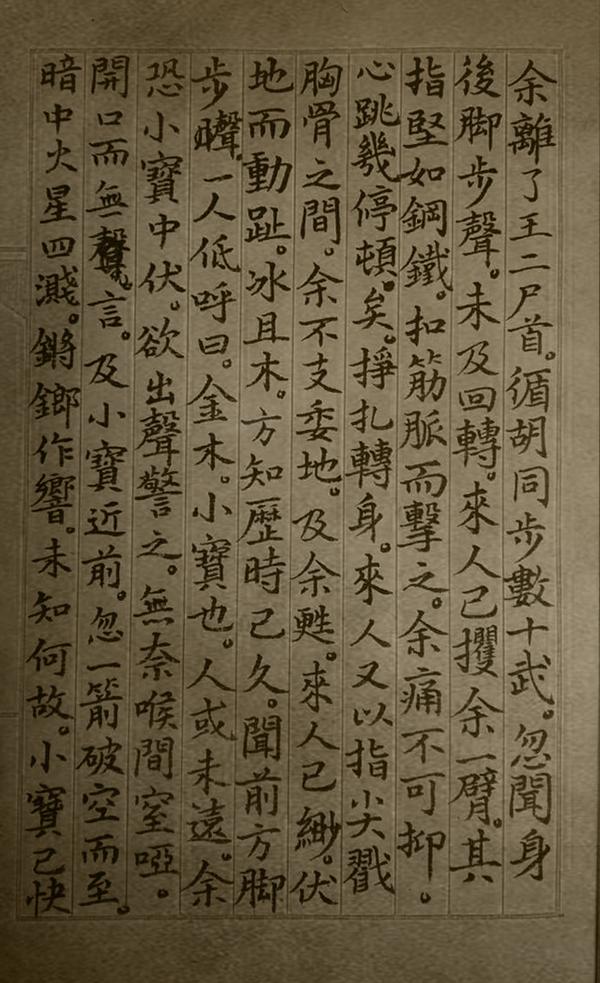 余離了王二尸首。循胡同步數十武。忽聞身
後脚步聲。未及回轉。來人已攫余一臂。其
指堅如鋼鐵。扣筋脈而擊之。余痛不可抑。
心跳幾停頓。矣。掙扎轉身。來人又以指尖戳
胸骨之間。余不支委地。及余甦。來人已緲。伏
地而動趾。冰且木。方知歷時已久。聞前方脚
步聲一人低呼曰。金木。小寶也。人或未遠。余
恐小寶中伏。欲出聲警之。無奈喉間窒啞。
開口而無聲言。及小寶近前。忽一箭破空而至。
暗中火星四濺。鏘鎯作響。未知何故。小寶已快